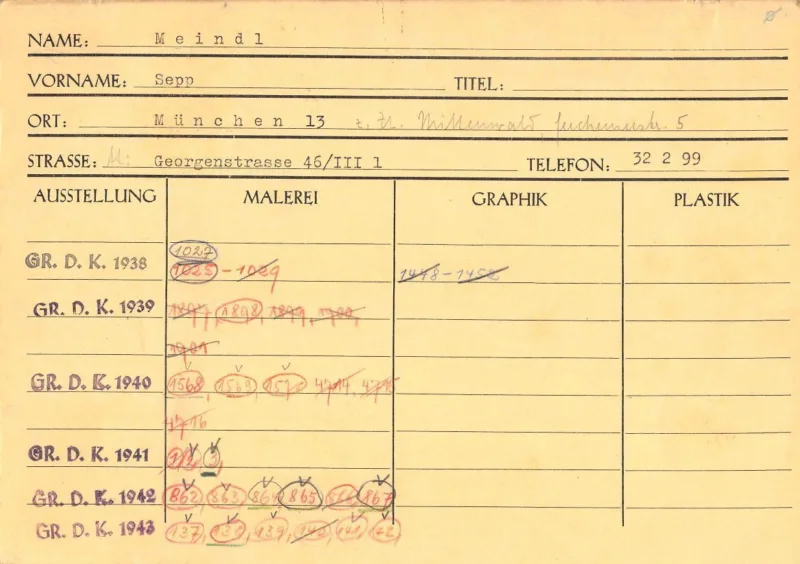 NAME: Meindl
VORNAME: Sepp TITEL:
ORT: München 13 z. Zt. Mittenwald,
STRASSE: Georgenstrasse 46/III l TELEFON: 32 2 99
AUSSTELLUNG MALEREI GRAPHIK PLASTIK
1027
GR. D. K. 1938 1025 - 1029 1448 - 1452
GR. D. K. 1939 1897, 1898, 1899, 1900,
1901
GR. D. K. 1940 1568, 1569, 1570 4714, 4715
4716
GR. D. K. 1941
GR. D. K. 1942 862, 863, 864, 865, 867
GR. D. K. 1943 137, 138, 139, 141, 142